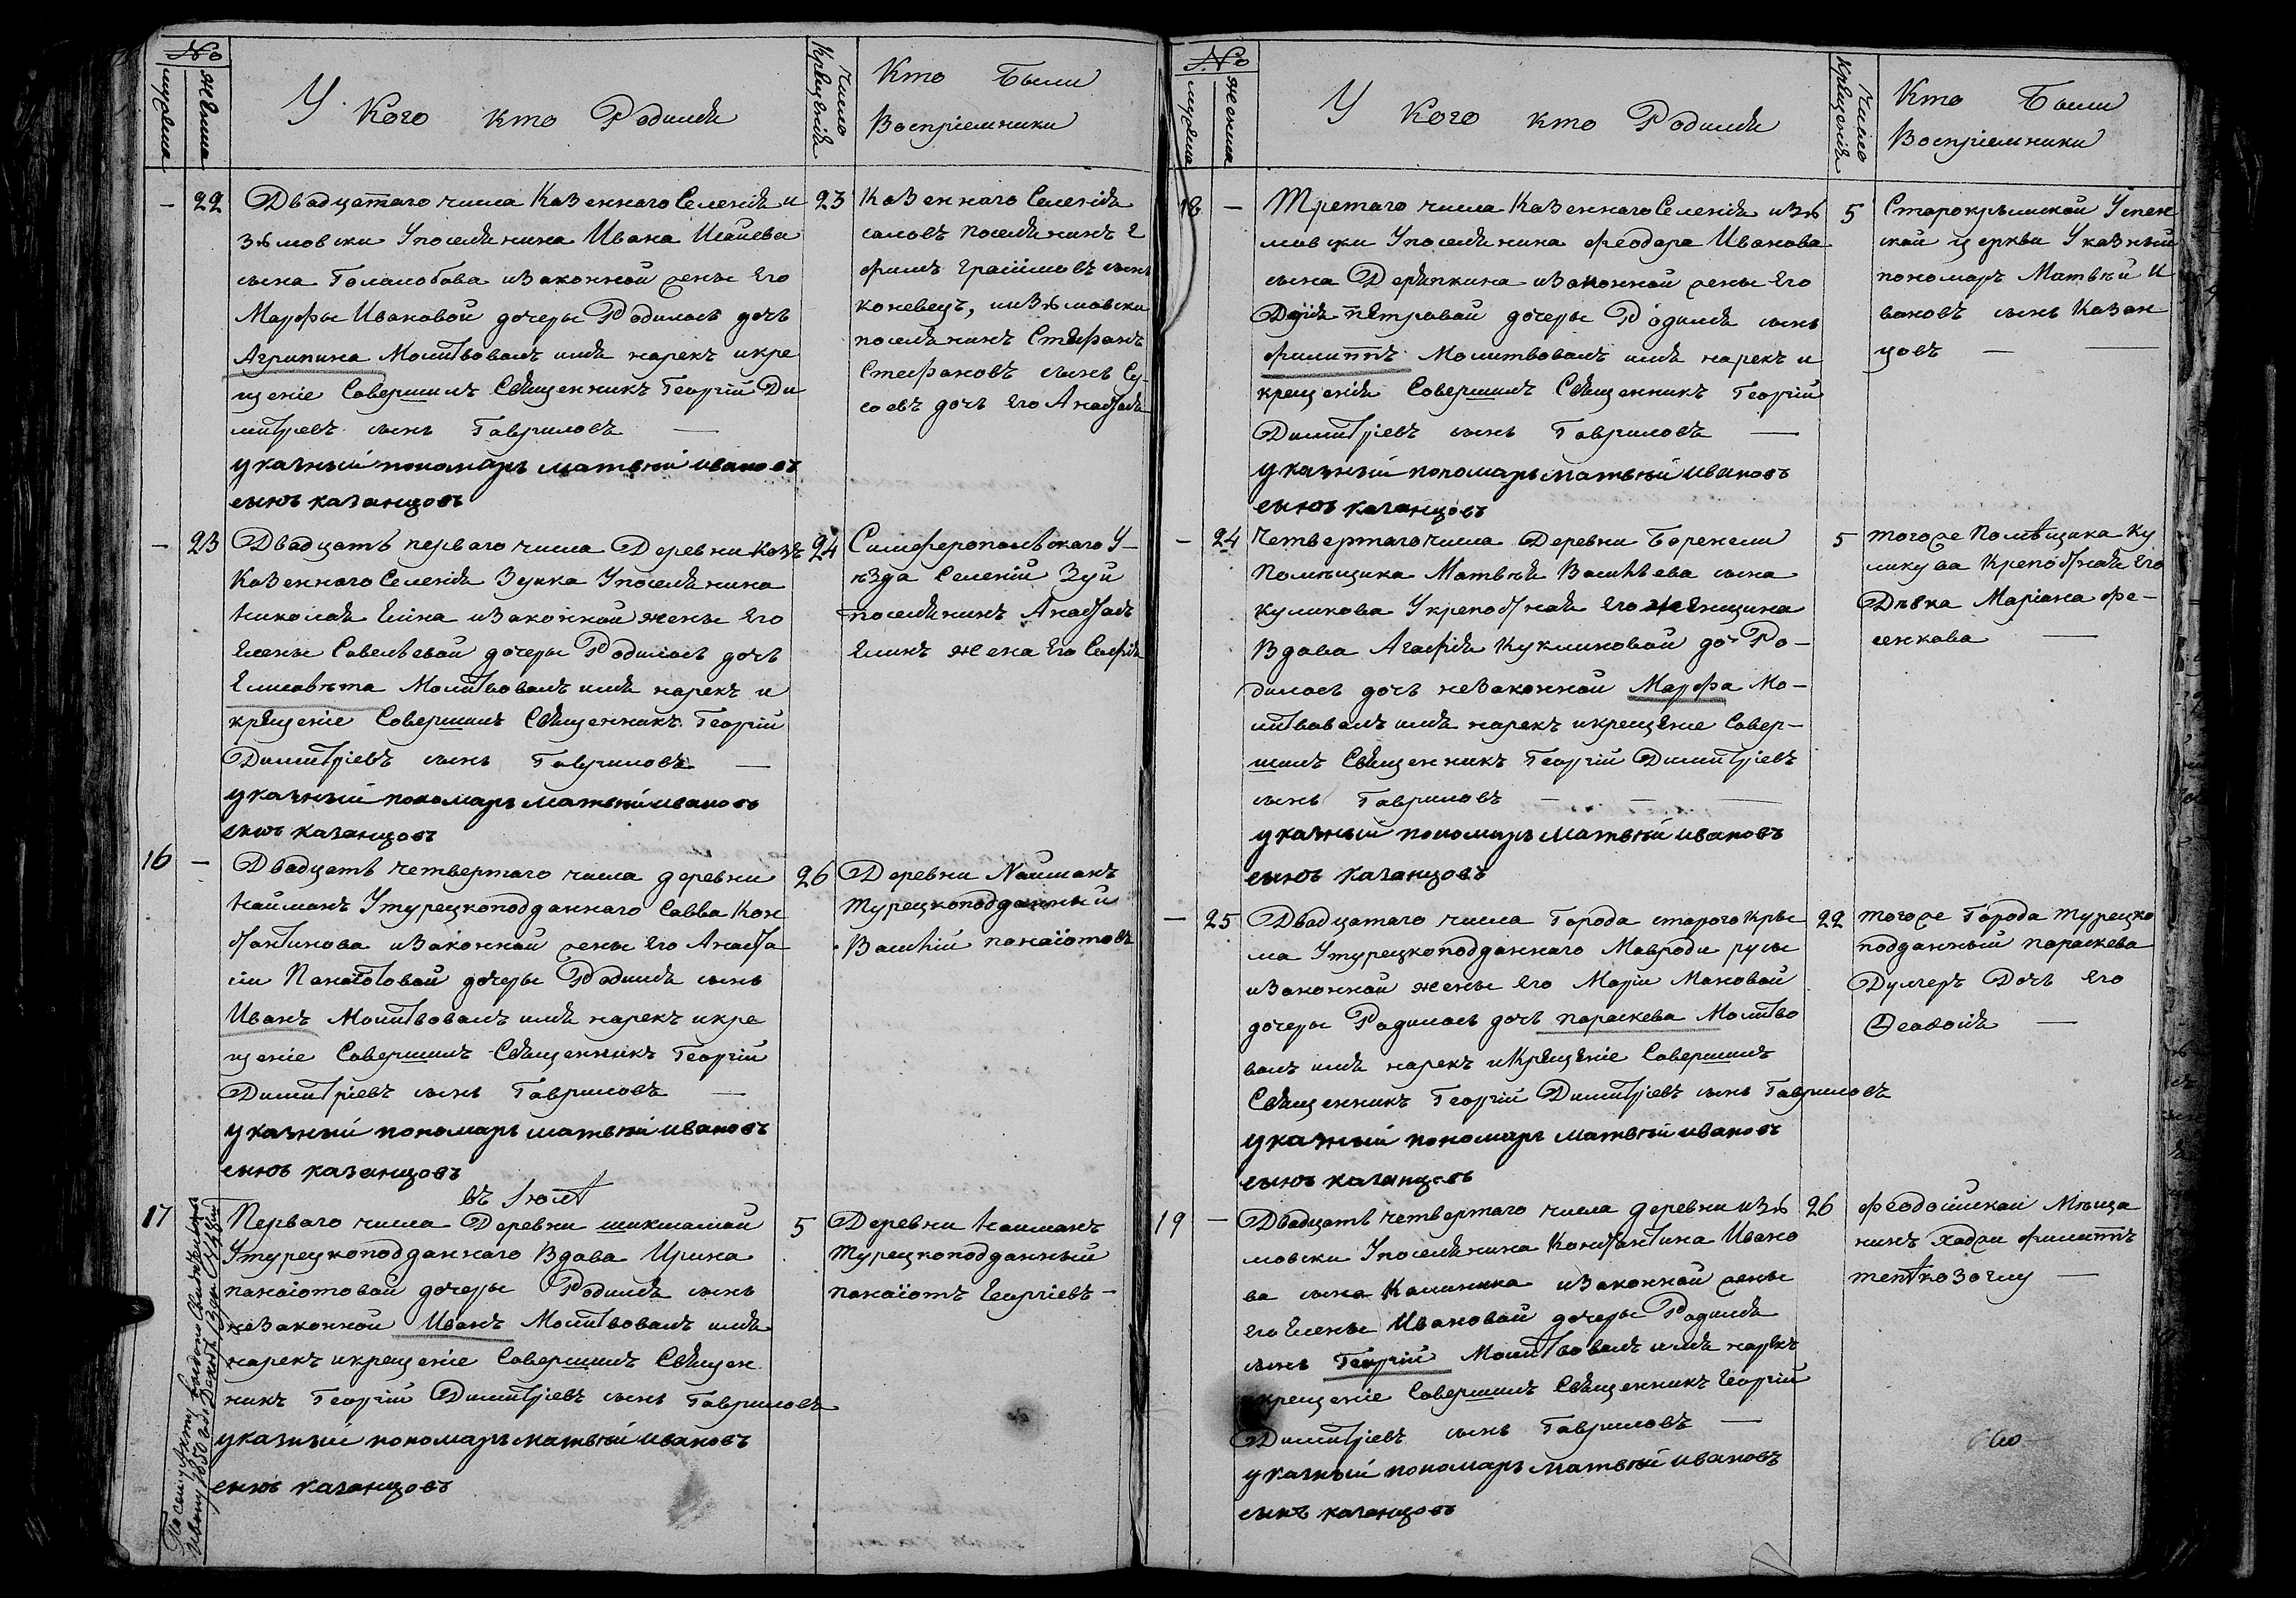 №
мужеска
женска
У Кого кто Родился
Число Крещенія
Кто Были
Воспріемники
— 22
Двадцетаго числа Казеннаго Селенія и
зюмовски У поселянина Ивана Исаиева
сына Голалобава изаконной жены Его
Марфы Ивановой дочеры Родилась дочь
Агрипина Молитвовалъ имя нарекъ икре
щеніе Совершилъ Священникъ Георгій Ди
митріевъ сынъ Гавриловъ —
указный пономарь матвѣй ивановъ
сынъ казанцовъ
23
Казеннаго Селенія
саловъ поселянинъ Е
фимъ Герасимовъ сынъ
коневецъ, иизюмовски
поселянинъ Стефанъ
Стефановъ сынъ Су-
соевъ дочь Его Анастасія
— 23
Двадцать перваго числа Деревни
Казеннаго Селенія Зуика Упоселянина
Николая Елина изаконной жены Его
Елены Савельевой дочеры Родилась дочь
Елисавѣта Молитвовалъ имя нарекъ и
крещеніе Совершилъ Священникъ Георгій
Димитріевъ сынъ Гавриловъ —
указный пономарь матвѣй ивановъ
сынъ казанцовъ
24
Симферопольскаго У-
ѣзда Селеній Зуи
поселянинъ Анастасъ
Елинъ жена Его Софія
16 —
Двадцать четвертаго числа деревни
Найманъ Утурецкоподданнаго Савва Кон
стантинова изаконной жены Его Анаста
сіи Панаіотовой дочеры Родился сынъ
Иванъ Молитвовалъ имя нарекъ икре
щеніе Совершилъ Священникъ Георгій
Димитріевъ сынъ Гавриловъ —
указный пономарь матвѣй ивановъ
сынъ казанцовъ
26
Деревни Найманъ
Турецкоподданный
Василій панаіотовъ
въ Іюлѣ
17
Перваго числа Деревни шикмамай
Утурецкоподданнаго Вдова Ирина
панаіотовой дочеры Родился сынъ
неЗаконной Иванъ Молитвовалъ имя
нарекъ икрещеніе Совершилъ Священ
никъ Георгій Димитріевъ сынъ Гавриловъ
указный пономарь матвѣй ивановъ
сынъ казанцовъ
5
Деревни Найманъ
Турецкоподданный
панаіотъ Георгіевъ —
По сему Акту выдано Свидѣтельство
Ивану 1850 года
№
мужеска
женска
У Кого кто Родился
Число Крещенія
Кто Были
Воспріемники
18 —
Третаго числа Казеннаго Селенія изю
мовски Упоселянина Феодара Иванова
сына Деряпкина изаконной жены Его
Дарія Петровой дочеры Родился сынъ
Филиппъ Молитвовалъ имя нарекъ и
крещенія Совершилъ Священникъ Георгій
Димитріевъ сынъ Гавриловъ —
указный пономарь матвѣй ивановъ
сынъ казанцовъ
5
Старокрымской Успен
ской церкви Указный
пономарь Матвѣй И
вановъ сынъ Казан
цовъ — —
— 24
Четвертаго числа Деревни Боренели
Помѣщика Матвѣя Васильева сына
Куликова Укрепостная Его Женщина
Вдова Агафія Кукликовой до Ро-
дилась дочь неЗаконной Марфа Мо-
литвовалъ имя нарекъ икрещеніе Совер-
шилъ Священникъ Георгій Димитріевъ
сынъ Гавриловъ — — —
указный пономарь матвѣй ивановъ
сынъ казанцовъ
5
тогоже Помѣщика Ку
ликува Крепостная Его
Дѣвка Маріана Фе-
сенкава —
— 25
Двадцатаго числа Города стараго Кры
ма Утурецкоподданнаго Мавроди русы
изаконной жены Его Маріи Мановой
дочеры Радилась дочь параскева Молитво
валъ имя нарекъ икрещеніе Совершилъ
Священникъ Георгій Димитріевъ сынъ Гавриловъ
указный пономарь матвѣй ивановъ
сынъ казанцовъ
22
тогоже Города турецко
подданный параскева
Дулгеръ Дочь Его
Феодосія —
19 —
Двадцать четвертаго числа деревни изю
мовски Упоселянина Константина Ивано
ва сына Калиника изаконной жены
Его Елены Ивановой дочеры Радился
сынъ Георгій Молитвовалъ имя нарекъ
икрещеніе Совершилъ Священникъ Георгій
Димитріевъ сынъ Гавриловъ —
указный пономарь матвѣй ивановъ
сынъ казанцовъ
26
Феодосійской Мѣща
нинъ Хаджи Филиппъ